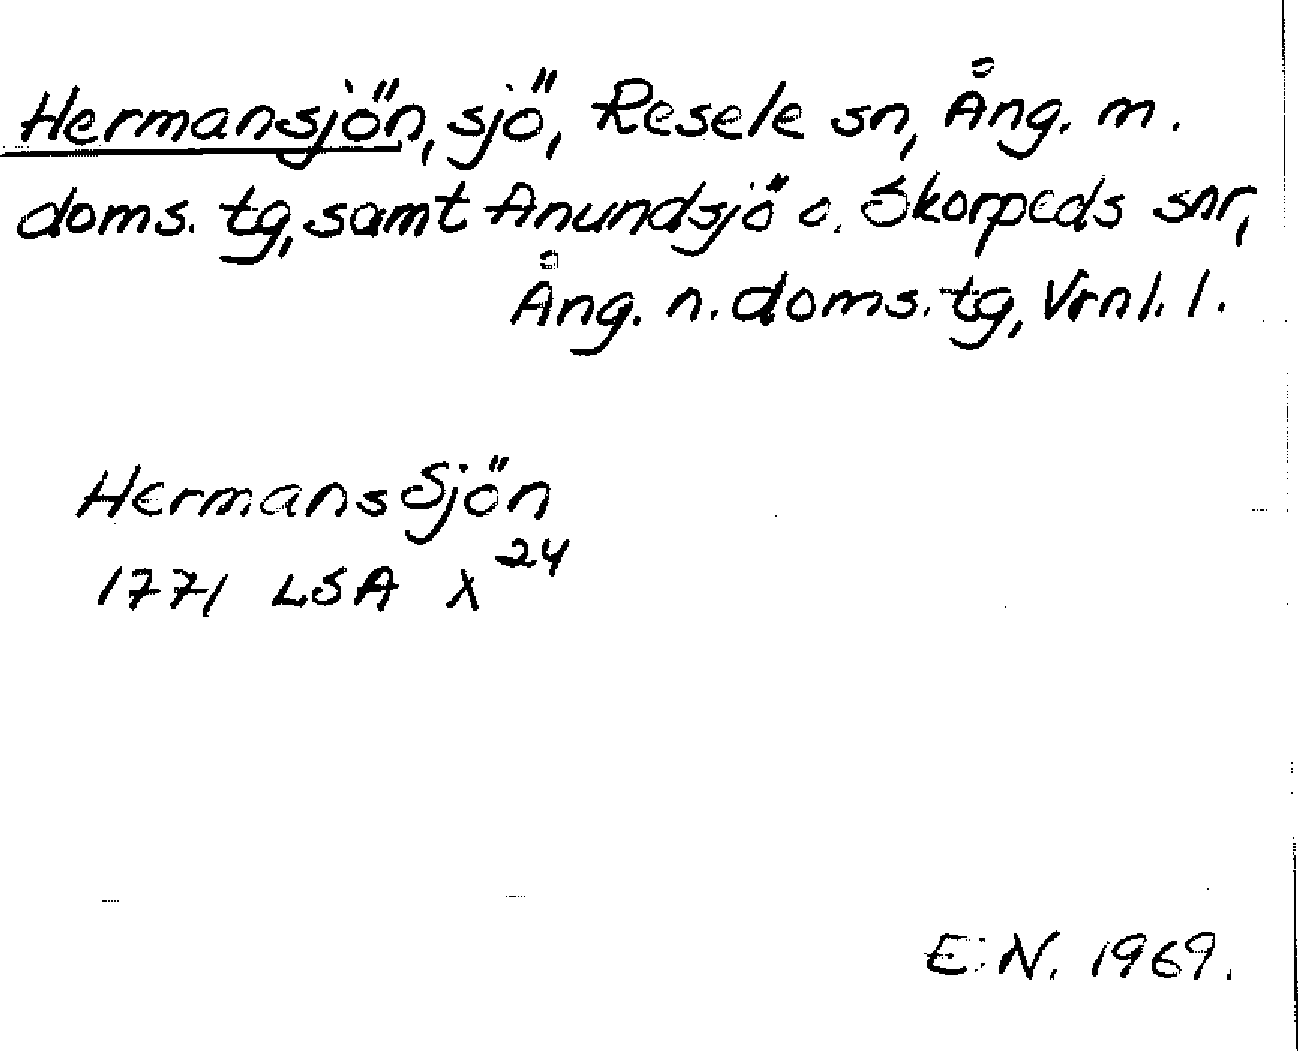 Hermansjön, sjö, Resele sn, Ång. m.
doms. tg, samt Anundsjö o. Skorpeds snr,
Ång. n. doms. tg, Vrnl. l.
HermansSjön
1771 LSA X 24
E.N. 1969.